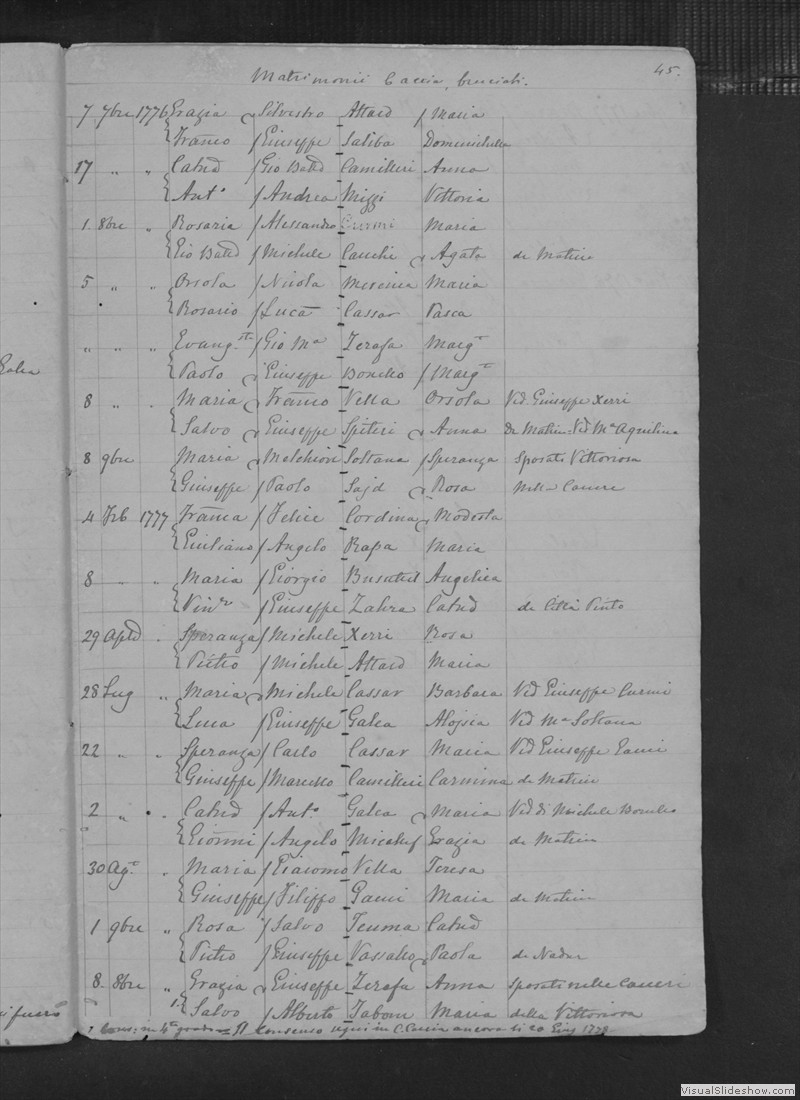 45.
Matrimonii Caccia, bruciati.
7 7bre 1776 Grazia Silvestro Attard Maria
Franco Giuseppe Saliba Domenichella
17 " " Catnd Gio Battd Camilleri Anna
Anto Andrea Mizzi Vittoria
1. 8bre " Rosaria Alessandro Curmi Maria
Gio Battd Michele Cauchi Agata
5 " " Orsola Nicola Maria
Rosario Luca Cassar Pasca
" " " Evang Gio Ma Zerafa Marga
Paolo Giuseppe Bonello Marga
8 " . Maria Franco Vella Orsola Vid. Giuseppe Xerri
Salvo Giuseppe Spiteri Anna Vid Ma Aquilina
8 9bre Maria Melchior Soltana Speranza sposati Vittoriosa
Giuseppe Paolo Sajd Rosa
4 Feb 1777 Franca Felice Cordina Modesta
Giuliano Angelo Rapa Maria
8 " " Maria Giorgio Busuttil Angelica
Vinr Giuseppe Zahra Catnd de Città Pinto
29 Aple . Speranza Michele Xerri Rosa
Pietro Michele Attard Maria
28 Lug " Maria Michele Cassar Barbara Vid Giuseppe Curmi
Luca Giuseppe Galea Alojsia Vid Ma Soltana
22 " . Speranza Carlo Cassar Maria Vid Giuseppe Gauci
Giuseppe Camilleri Carmina
2 " . Catnd Anto Galea Maria Vid di Michele Bonello
Gionni Angelo Micallef Grazia
30 Ago . Maria Giacomo Vella Teresa
Giuseppe Filippo Gauci Maria
1 9bre " Rosa Salvo Teuma Catnd
Pietro Giuseppe Vassallo Paola de Nadur
8. 8bre " Grazia Giuseppe Zerafa Anna sposati nelle
1. Salvo Alberto Tabone Maria della Vittoriosa
in 4o grado = Il consenso in C. Curia ancora li 20 1778
VisualSlideshow.com